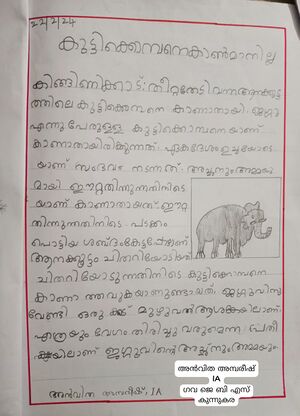 22/2/24
കുട്ടിക്കൊമ്പനെകാൺമാനില്ല
കിങ്ങിണിക്കാട്: തീറ്റതേടി വന്ന ആനക്കൂട്ട
ത്തിലെ കുട്ടിക്കൊമ്പനെ കാണാതായി. ജഗ്ഗു
എന്നു പേരുള്ള കുട്ടിക്കൊമ്പനെയാണ്
കാണാതായിരിക്കുന്നത്. ഏകദേശം ഉച്ചയോടെ
യാണ് സംഭവം നടന്നത്. അച്ഛനും അമ്മയു
മായി ഈറ്റതിന്നുന്നതിനിടെ
യാണ് കാണാതായത്. ഈറ്റ
തിന്നുന്നതിനിടെ പടക്കം
പൊട്ടിയ ശബ്ദംകേട്ടപ്പോളാണ്
ആനക്കൂട്ടം ചിതറിയോടിയത്
ചിതറിയോടുന്നതിനിടെ കുട്ടിക്കൊമ്പനെ
കാണാതാവുകയാണുണ്ടായത്. ജഗ്ഗുവിനു
വേണ്ടി ഒരു മുഴുവൻ ആശങ്കയിലാണ്.
എത്രയും വേഗം തിരിച്ചു വരുമെന്ന പ്രതീ
ക്ഷയിലാണ് ജഗ്ഗുവിന്റെ അച്ഛനും അമ്മയും.
അൻവിത അമ്പരീഷ്. 1A
അൻവിത അമ്പരീഷ്
IA
ഗവ ജെ ബി എസ്
കുന്നുകര